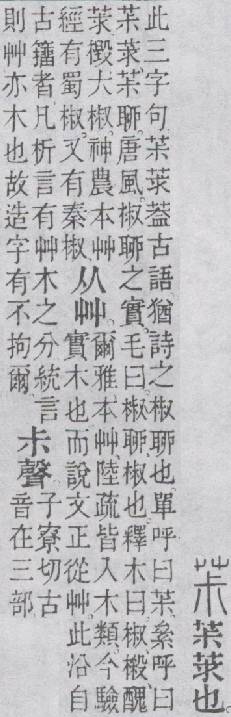 茮 茮莍也。
此三字句。茮莍葢古語。猶詩之椒聊也。單呼曰茮。絫呼曰
茮莍。茮聊。唐風。椒聊之實。毛曰。椒聊、椒也。釋木曰。椒樧醜
莍。樧大椒。神農本艸
經有蜀椒。又有秦椒。
从艸。
爾雅本艸陸疏皆入木類。今驗
實木也。而說文正從艸。此沿自
古籒者。凡析言有艸木之分。統言
則艸亦木也。故造字有不拘爾。
尗聲。
子寮切。古
音在三部。